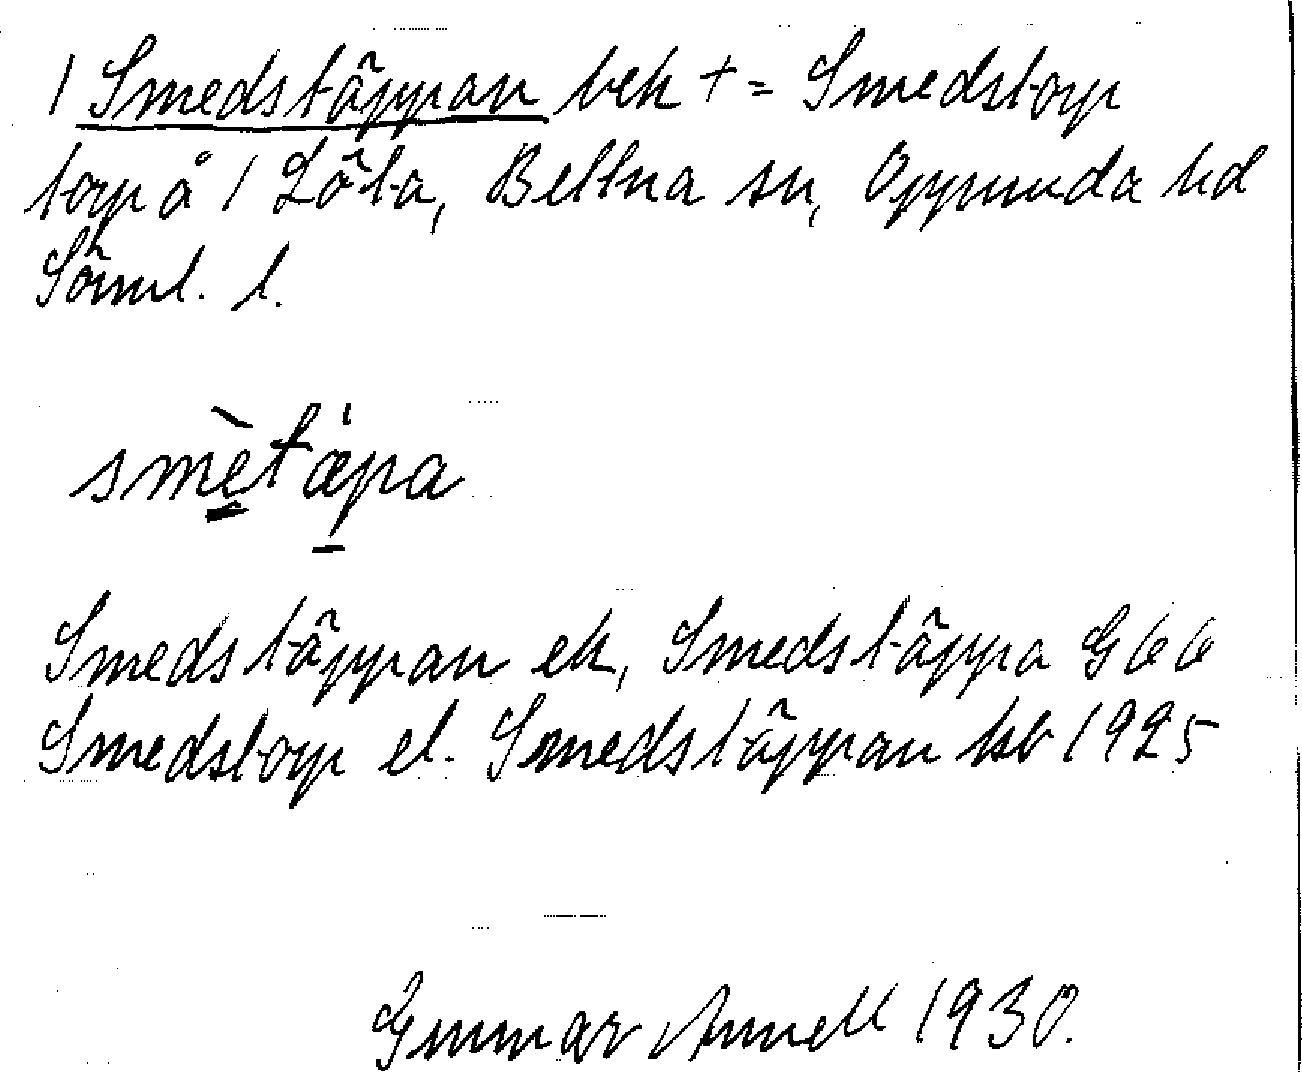 1 Smedstäppan bek + = Smedstorp
torp å 1 Löta, Bettna sn, Oppunda hd
Söml. l.
smètä́pa
Smedstäppan ek, Smedstäppa G66
Smedstorp el. Smedstäppan kb 1925
Gunnar Annell 1930.